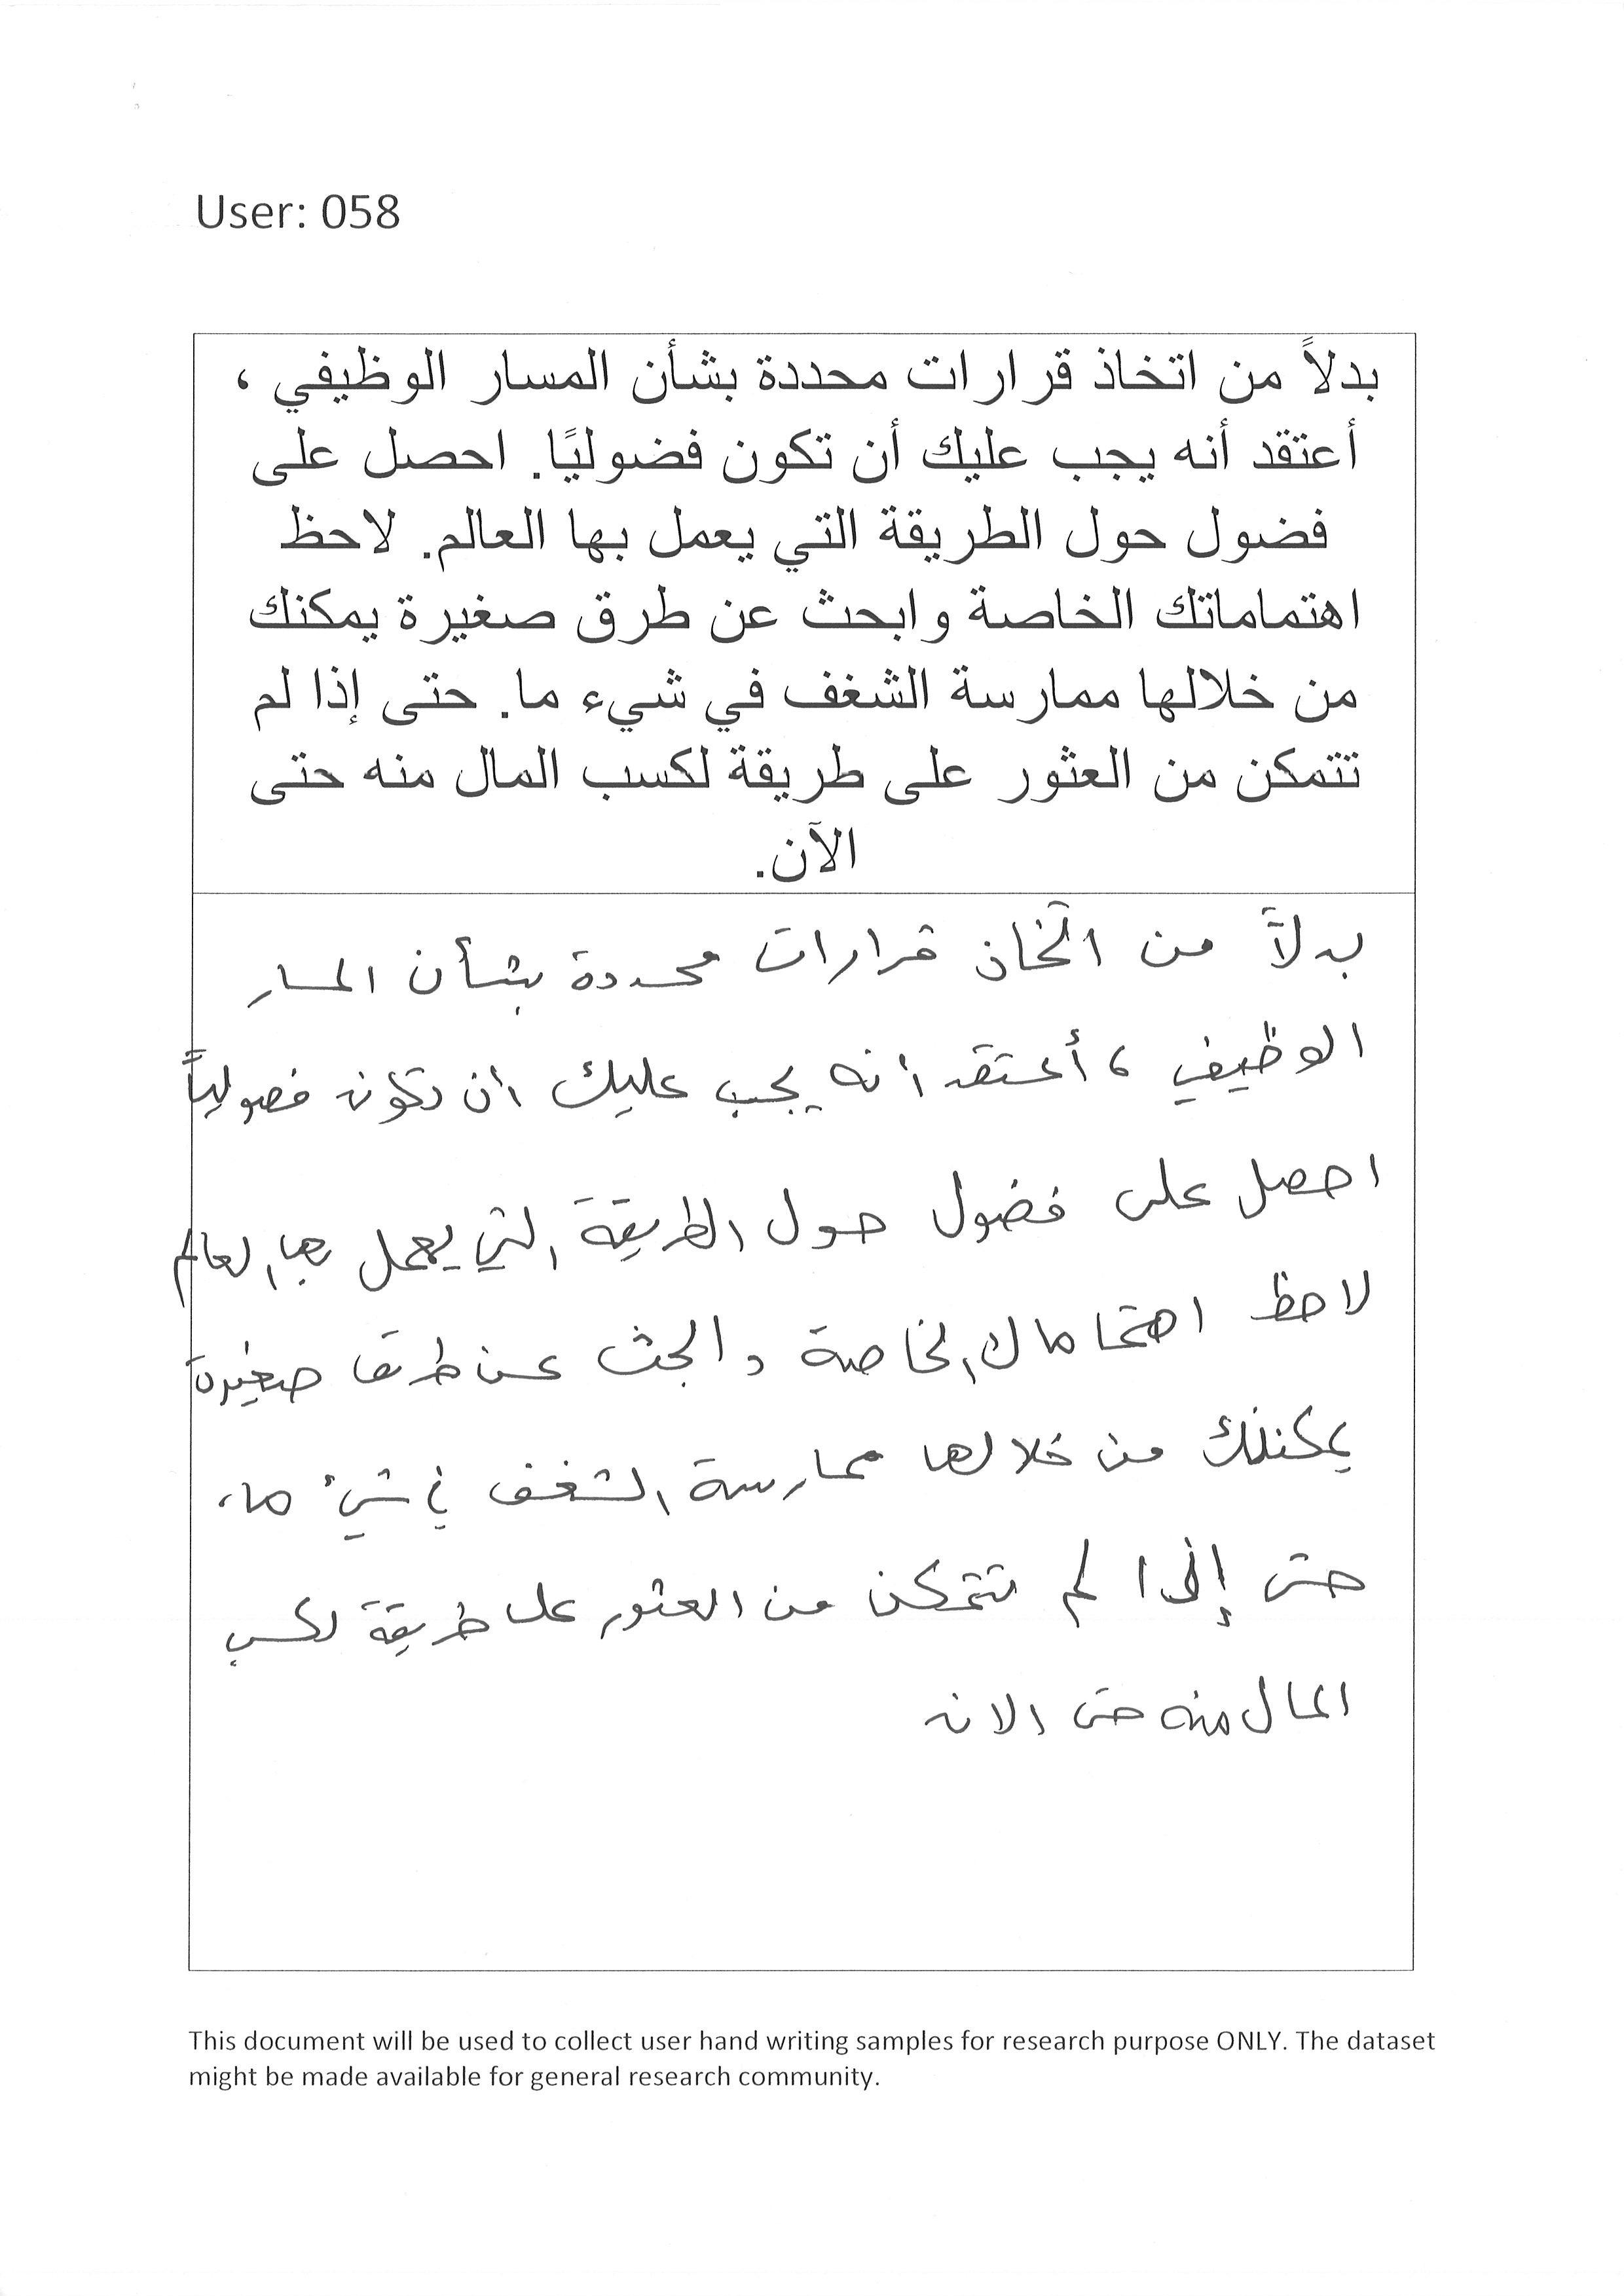 User: 058
بدلاً من اتخاذ قرارات محددة بشأن المسار الوظيفي ،
أعتقد أنه يجب عليك أن تكون فضوليًا. احصل على
فضول حول الطريقة التي يعمل بها العالم. لاحظ
اهتماماتك الخاصة وابحث عن طرق صغيرة يمكنك
من خلالها ممارسة الشغف في شيء ما. حتى إذا لم
تتمكن من العثور على طريقة لكسب المال منه حتى
الآن.
بدلاً من اتخاذ قرارات محددة بشأن المسار
الوظيفي ، أعتقد أنه يجب عليك أن تكون فضولياً
احصل على فضول حول الطريقة التي يعمل بها العالم
لاحظ اهتماماك الخاصة وابحث عن طرق صغيرة
يمكنك من خلالها ممارسة الشغف في شيء ما،
حتى إذا لم تتمكن من العثور على طريقة لكسب
المال منه حتى الان
This document will be used to collect user hand writing samples for research purpose ONLY. The dataset
might be made available for general research community.